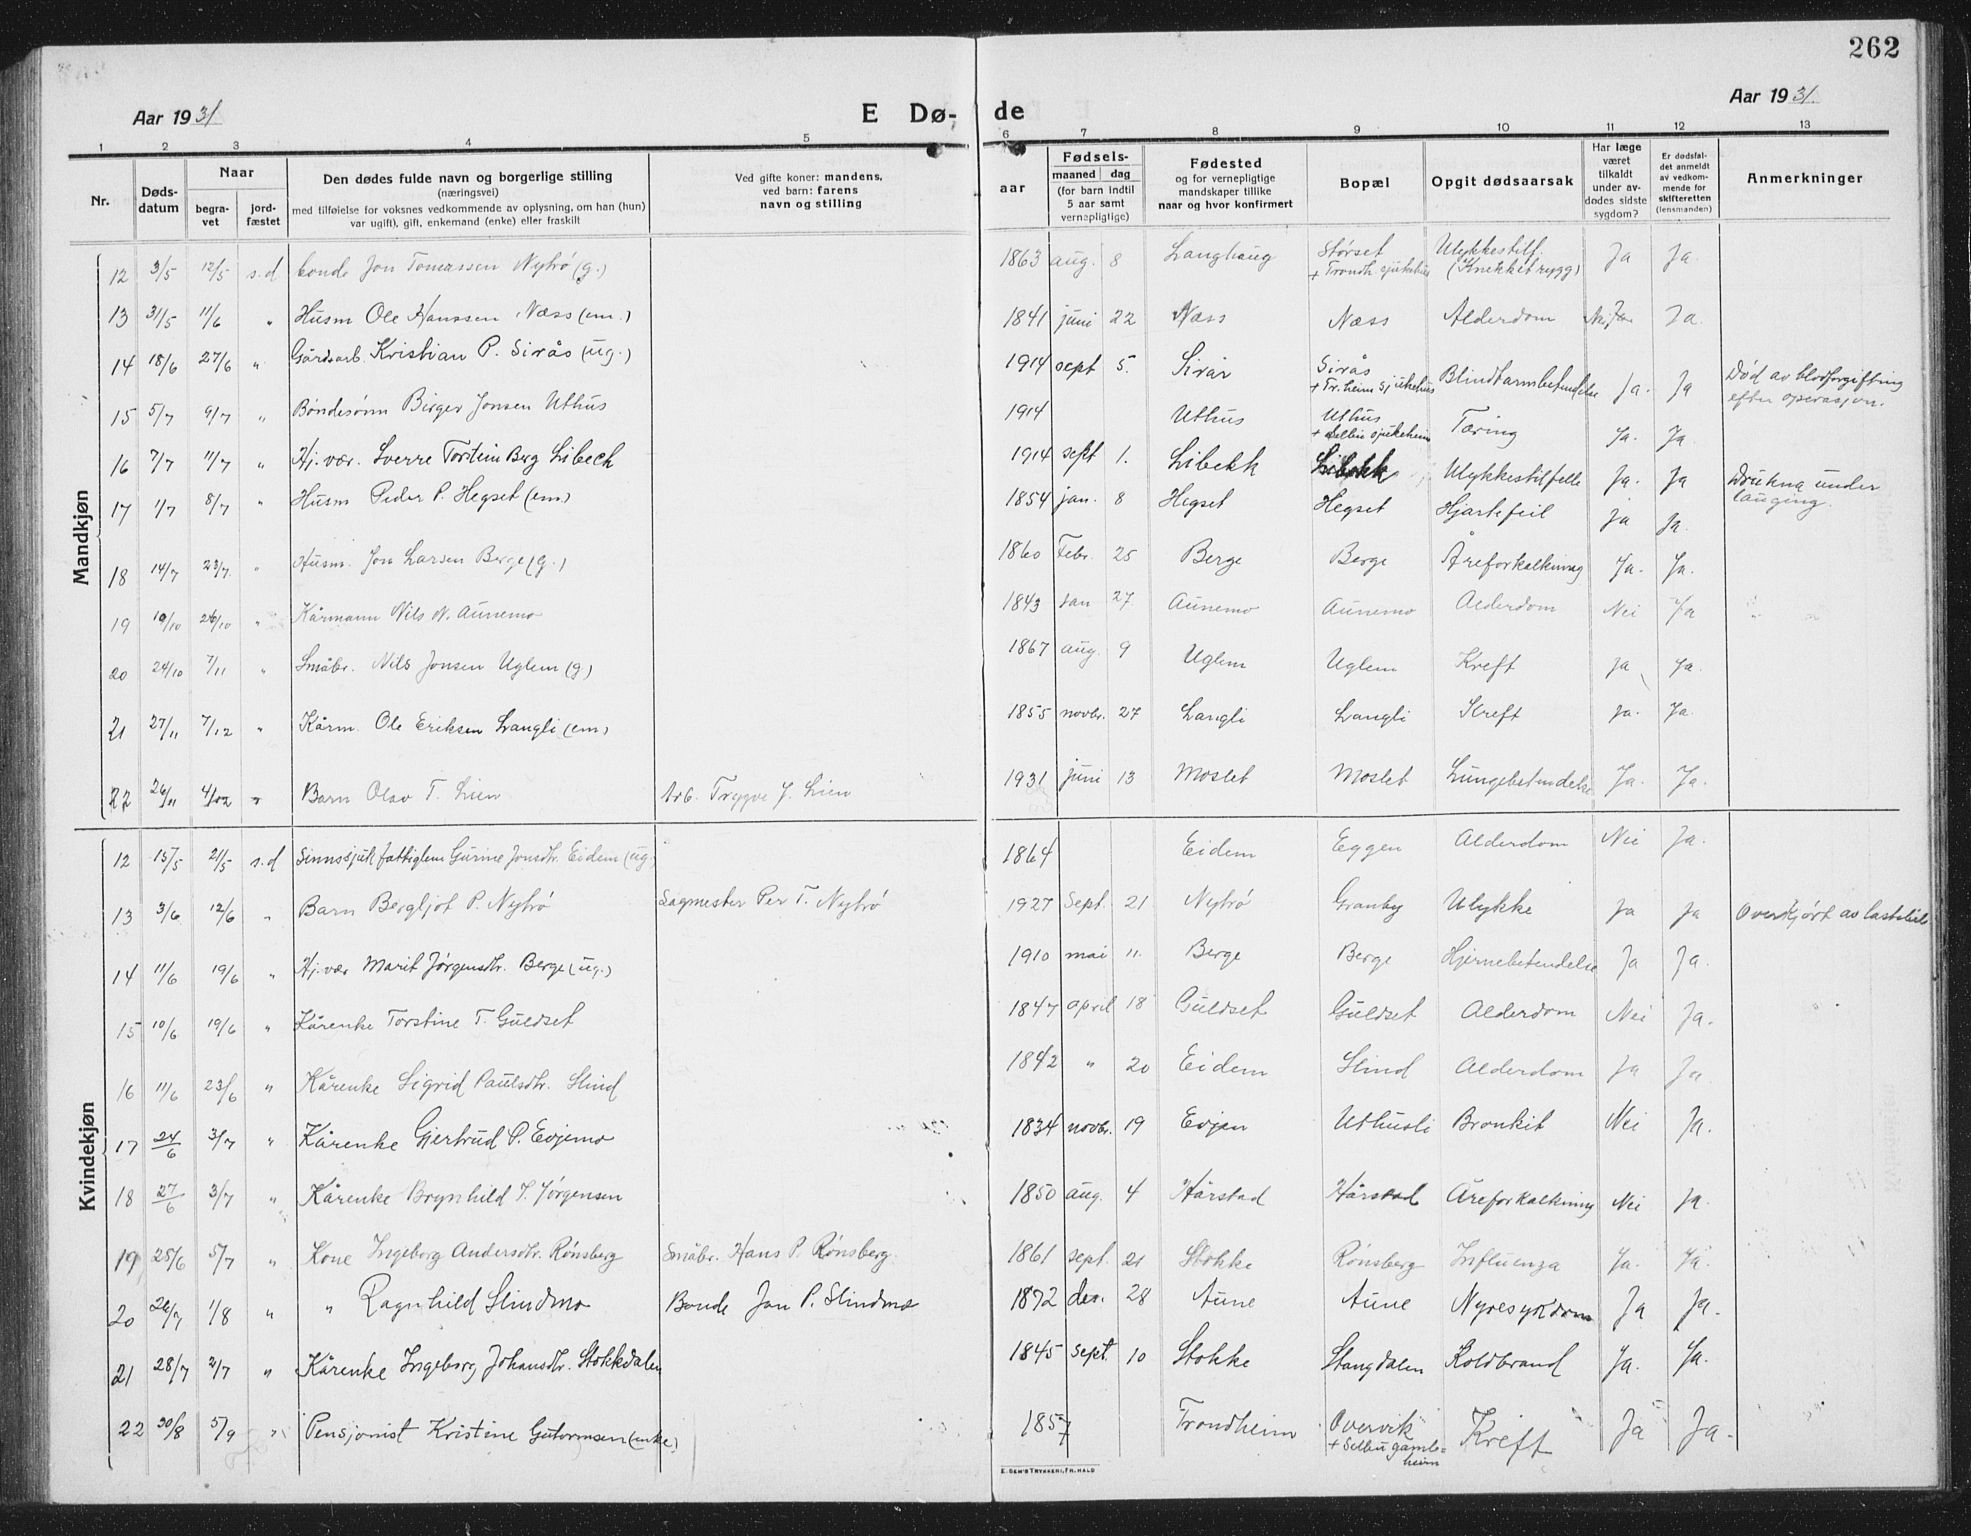 262
Aar 1931
E Dø-
de
Aar 1931.
1 2 3 4 5 6 7 8 9 10 11 12 13
Nr.
Døds-
datum
Naar
begra-
vet
jord-
fæstet
Den dødes fulde navn og borgerlige stilling
(næringsvei)
med tilføielse for voksnes vedkommende av oplysning, om han (hun)
var ugift), gift, enkemand (enke) eller fraskilt
Ved gifte koner: mandens,
ved barn: farens
navn og stilling
aar
Fødsels-
maaned dag
(for barn indtil
5 aar samt
vernepligtige)
Fødested
og for vernepligtige
mandskaper tillike
naar og hvor konfirmert
Bopæl
Opgit dødsaarsak
Har læge
været
tilkaldt
under av-
dødes sidste
sygdom?
Er dødsfal-
det anmeldt
av vedkom-
mende for
skifteretten
(lensmanden)
Anmerkninger
Mandkjøn
12 3/5 12/5 s.d Bonde Jon Tomassen Nytrø (g.) 1863 aug. 8 Langhaug Størset + Trondh. sjukehus Ulykkestilf. (Knekket rygg) Ja Ja.
13 31/5 11/6 " Husm Ole Hanssen Næss (em.) 1841 juni 22 Næss Næss Alderdom Ja.
14 18/6 27/6 " Gårdsarb. Kristian P. Sirås (ug.) 1914 sept 5. Sirås Sirås + Tr.heim sjukehus Blindtarmbetendelse Ja. Ja Død av blodforgiftning efter operasjon.
15 5/7 9/7 " Bøndesønn Birger Jonsen Uthus 1914 Uthus Uthus + Selbu sjukeheim Tæring Ja. Ja.
16 7/7 11/7 " Hj.vær. Sverre Torstein Berg Libech 1914 sept 1. Libekk Libekk Ulykkestilfelle Ja. Ja Drukna under lauging.
17 1/7 8/7 " Husm Peder P. Hegset (em.) 1854 jan. 8 Hegset Hegset Hjartefeil Ja Ja.
18 14/7 23/7 " Husm. Jon Larsen Berge (g.) 1860 Febr. 25 Berge Berge Åreforkalkning Ja. Ja.
19 19/10 26/10 " Kårmann Nils N. Aunemo 1843 Jan 27 Aunemo Aunemo Alderdom Nei Ja
20 24/10 7/11 " Småbr. Nils Jonsen Uglem (g.) 1867 aug. 9 Uglem Uglem Kreft Ja Ja.
21 27/11 7/12 " Kårm. Ole Eriksen Langli (em) 1855 novbr. 27 Langli Langli Kreft Ja. Ja.
22 26/11 4/12 " Barn Olav T. Lien Arb. Trygve J. Lien 1931 juni 13 Moslet Moslet Lungebetendelse Ja. Ja.
Kvindekjøn
12 15/5 21/5 s.d Sinnssjuk fattiglem Gurine Jonsdtr. Eidem (ug. 1864 Eidem Eggen Alderdom Nei Ja.
13 3/6 12/6 " Barn Bergljot P. Nytrø Sagmester Per T. Nytrø 1927 Sept. 21 Nytrø Granby Ulykke Ja Ja Overkjørt av lastebil
14 11/6 19/6 " Hj.vær Marit Jørgensdtr. Berge (ug.) 1910 mai 11. Berge Berge Hjernebetendelse Ja Ja.
15 10/6 19/6 " Kårenke Torstine T. Guldset 1847 april 18 Guldset Guldset Alderdom Nei Ja.
16 11/6 23/6 " Kårenke Sigrid Paulsdtr. Slind 1842 " 20 Eidem Slind Alderdom Ja Ja.
17 24/6 3/7 " Kårenke Gjertrud P. Evjemo 1834 novbr. 19 Evjen Uthusli Bronkit Nei Ja.
18 27/6 3/7 " Kårenke Brynhild J. Jørgensen 1850 aug. 4 Hårstad Hårstad Åreforkalkning Nei Ja.
19 25/6 5/7 " Kone Ingeborg Andersdtr. Rønsberg Småbr. Hans P. Rønsberg. 1861 sept. 21 Stokke Rønsberg Influenza Ja. Ja.
20 26/7 1/8 " " Ragnhild Slindmo Bonde Jon P. Slindmo 1872 des. 28 Aune Aune Nyresykdom Ja Ja.
21 28/7 2/7 " Kårenke Ingeborg Johansdtr. Stokkdalen 1845 sept. 10 Stokke Stangdalen Koldbrand Ja. Ja.
22 30/8 5/9 " Pensjonist Kristine Gutormsen (enke) 1857 Trondheim Overvik + Selbu gamle=heim Kreft Ja Ja.
E. SEM'S TRYKKERI, FR.HALD